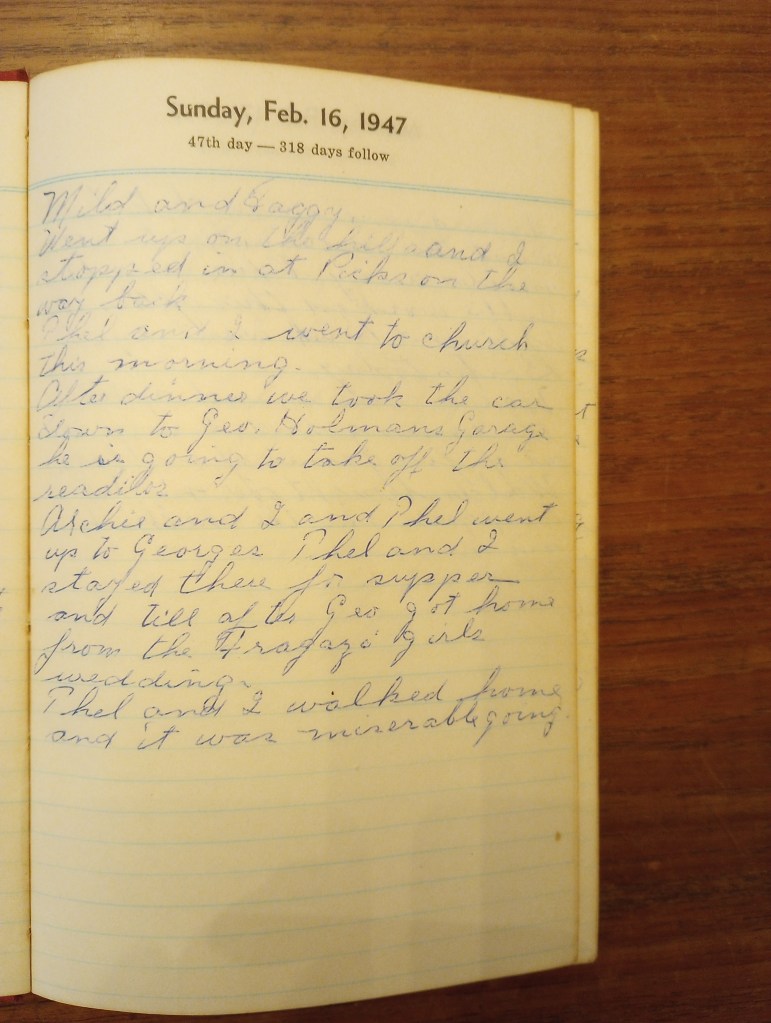 Sunday, Feb. 16, 1947
47th day — 318 days follow
Mild and
Went up on the hill and I
stopped in at Picks on the
way back
Phel and I went to church
this morning.
After dinner we took the car
down to Geo. Holmans Garage
he is going to take off the
Archie and I and Phel went
up to Georges Phel and I
stayed there for supper
and till after Geo got home
from the girls
wedding.
Phel and I walked home
and it was miserable going.